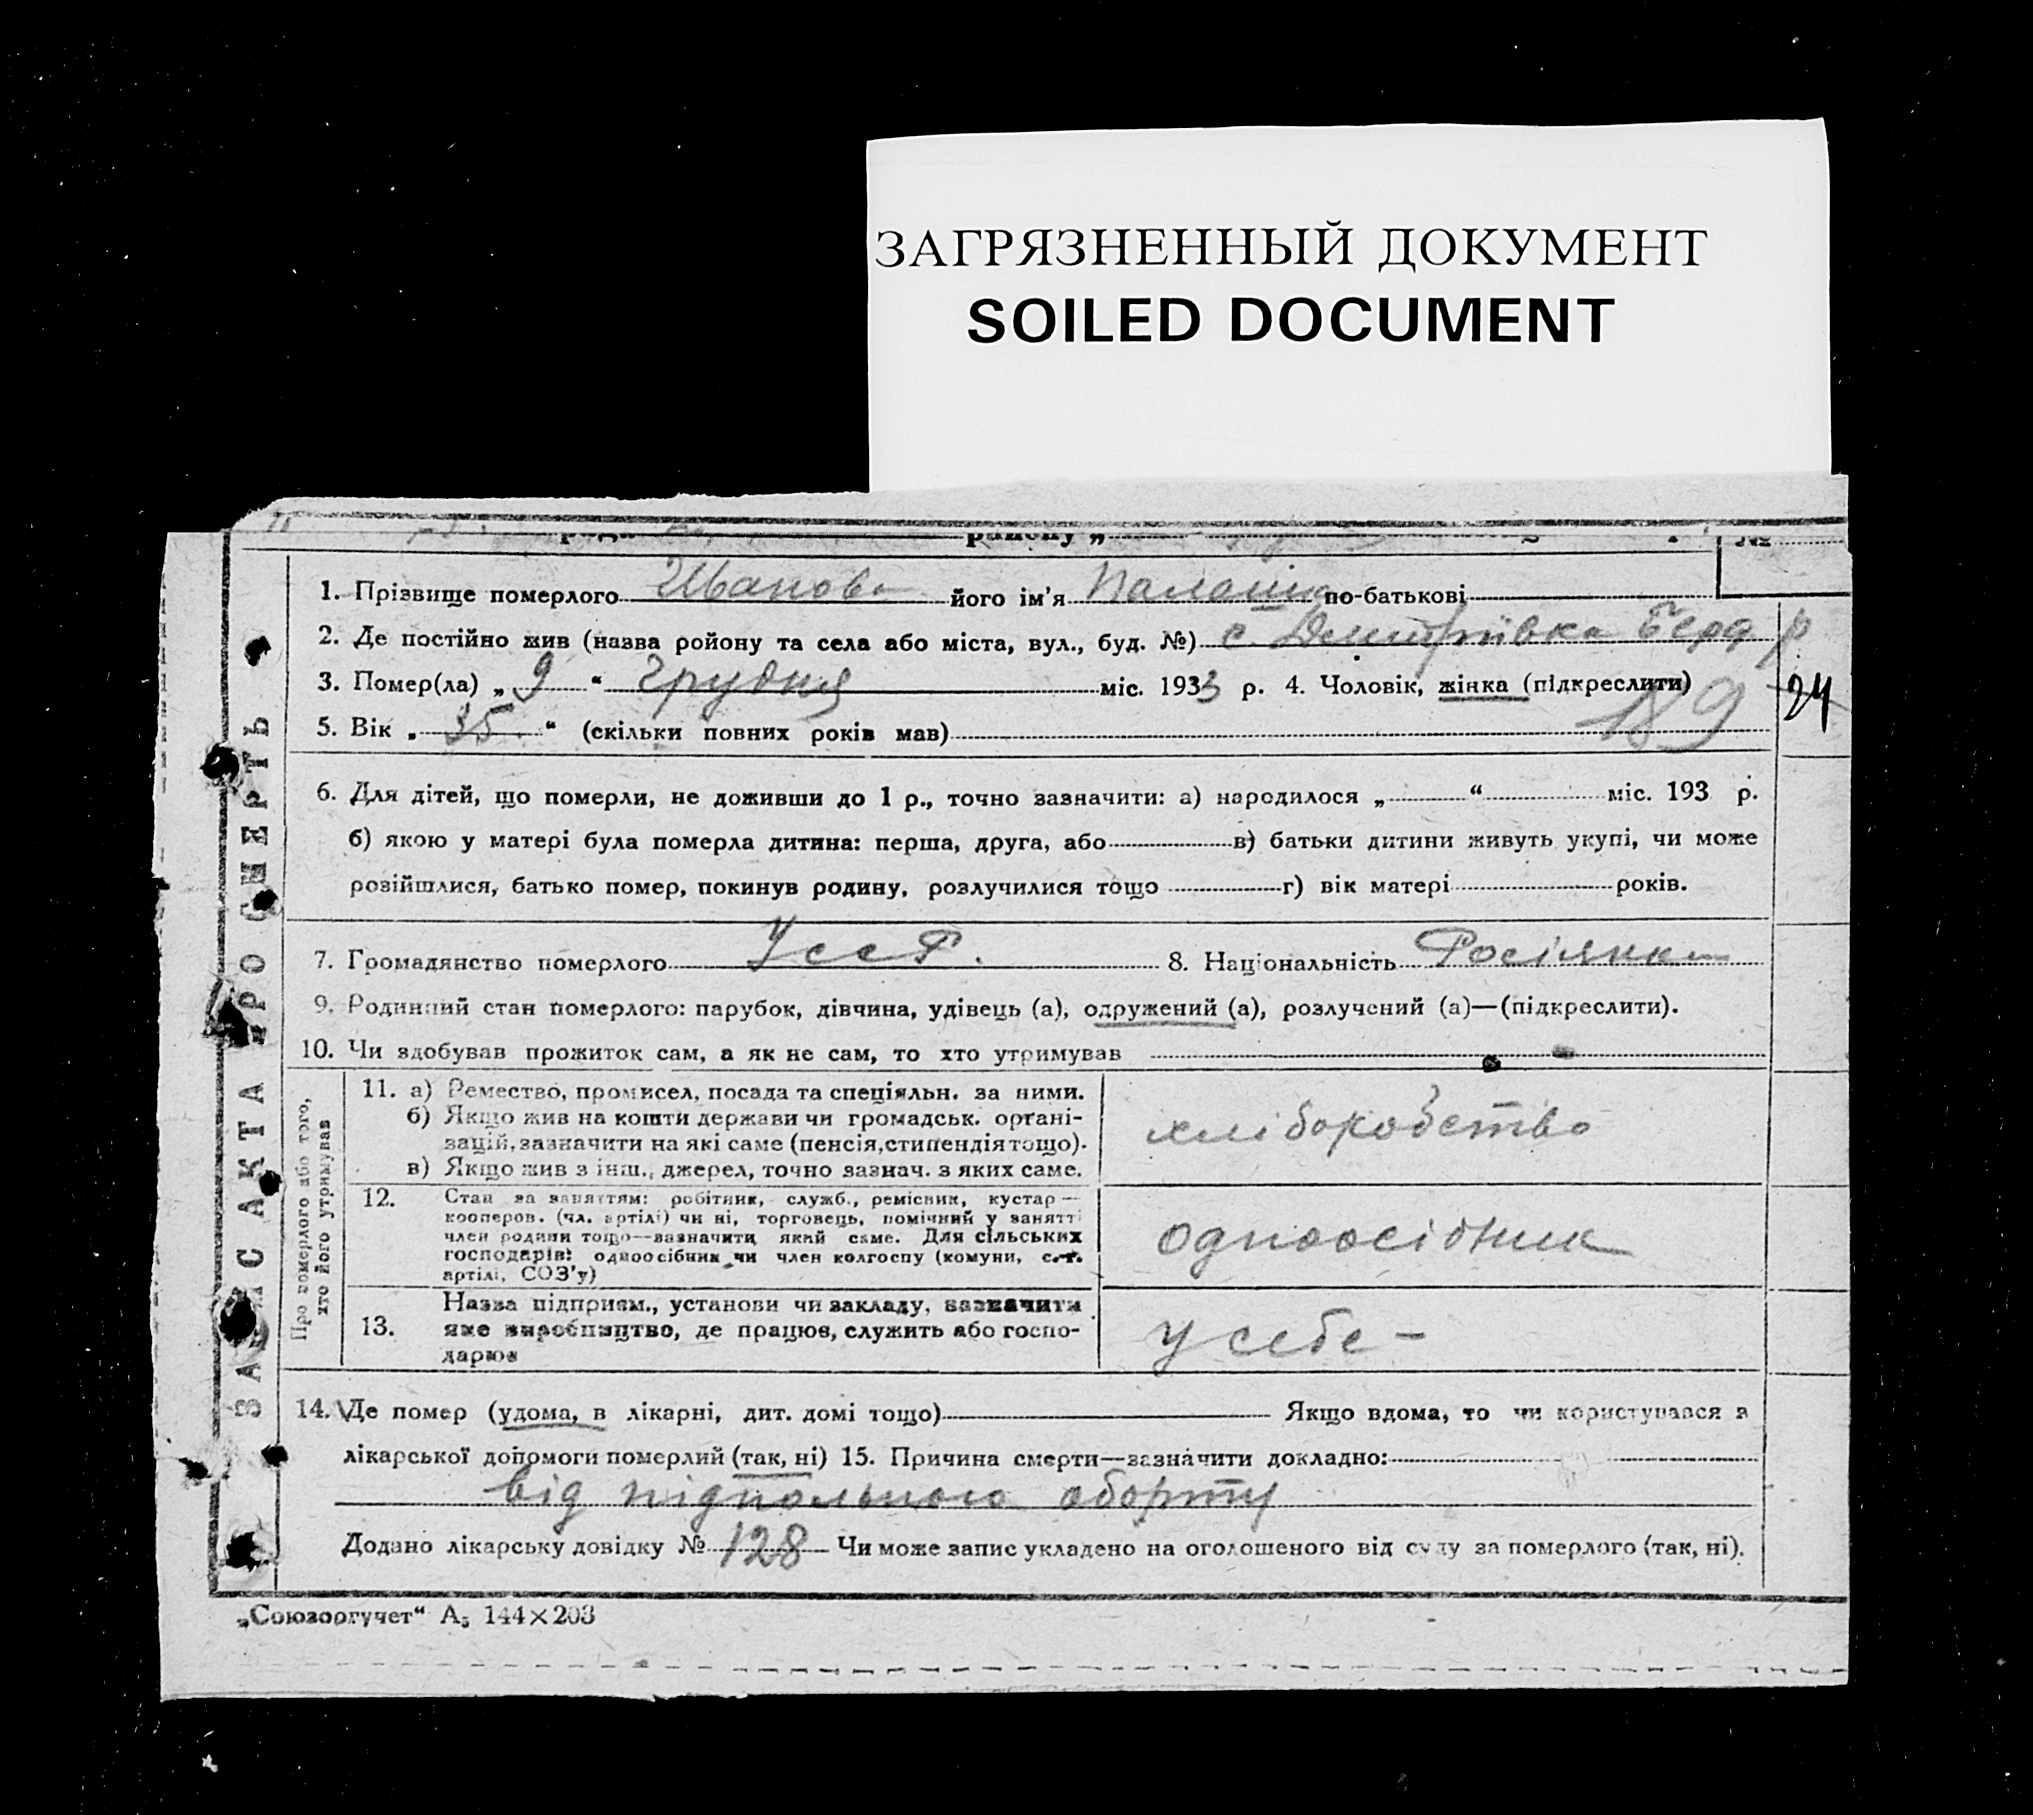 ЗАГРЯЗНЕННЫЙ ДОКУМЕНТ
SOILED DOCUMENT
району „ №
1. Прізвище померлого Иванова його ім'я Палашка по-батькові
2. Де постійно жив (назва ройону та села або міста, вул., буд. №) с. Дмитрівка Берд р
3. Помер(ла) „ 9 “ Грудня міс. 1933 р. 4. Чоловік, жінка (підкреслити) 24
5. Вік „ 35 “ (скільки повних років мав) 189
6. Для дітей, що померли, не доживши до 1 р., точно зазначити: а) народилося „ “ міс. 193 р.
б) якою у матері була померла дитина: перша, друга, або в) батьки дитини живуть укупі, чи може
розійшлися, батько помер, покинув родину, розлучилися тощо г) вік матері років.
7. Громадянство померлого УССР. 8. Національність Росіянка
9. Родинний стан померлого: парубок, дівчина, удівець (а), одружений (а), розлучений (а)—(підкреслити).
10. Чи здобував прожиток сам, а як не сам, то хто утримував
Про померлого або того, хто його утримував
11. а) Ремество, промисел, посада та спеціяльн. за ними.
б) Якщо жив на кошти держави чи громадськ. органі-
зацій, зазначити на які саме (пенсія, стипендія тощо).
в) Якщо жив з інш., джерел, точно зазнач. з яких саме.
хліборобство
12. Стан за заняттям: робітник, служб., ремісник, кустар —
кооперов. (чл. артілі) чи ні, торговець, помічний у занятті
член родини тощо—зазначити який саме. Для сільських
господарів: одноосібник чи член колгоспу (комуни, с.-г.
артілі, СОЗ'у)
одноосібник
13. Назва підприєм., установи чи закладу, зазначити
яке виробництво, де працює, служить або госпо-
дарює
у себе –
14. Де помер (удома, в лікарні, дит. домі тощо) Якщо вдома, то чи користувався з
лікарської допомоги померлий (так, ні) 15. Причина смерти—зазначити докладно:
від підпольного аборту
Додано лікарську довідку № 128 Чи може запис укладено на оголошеного від суду за померлого (так, ні).
ЗАПИС АКТА ПРО СМЕРТЬ
„Союзоргучет“ А5 144×203